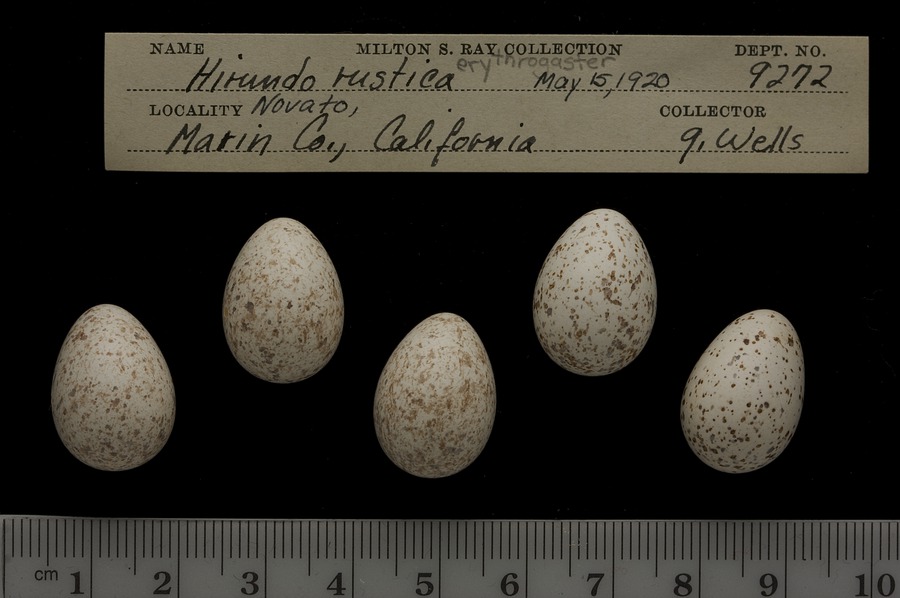 NAME MILTON S. RAY COLLECTION DEPT. NO.
Hirundo rustica erythrogaster May 15, 1920 9272
LOCALITY Novato, COLLECTOR
Marin Co., California G. Wells
cm 1 2 3 4 5 6 7 8 9 10